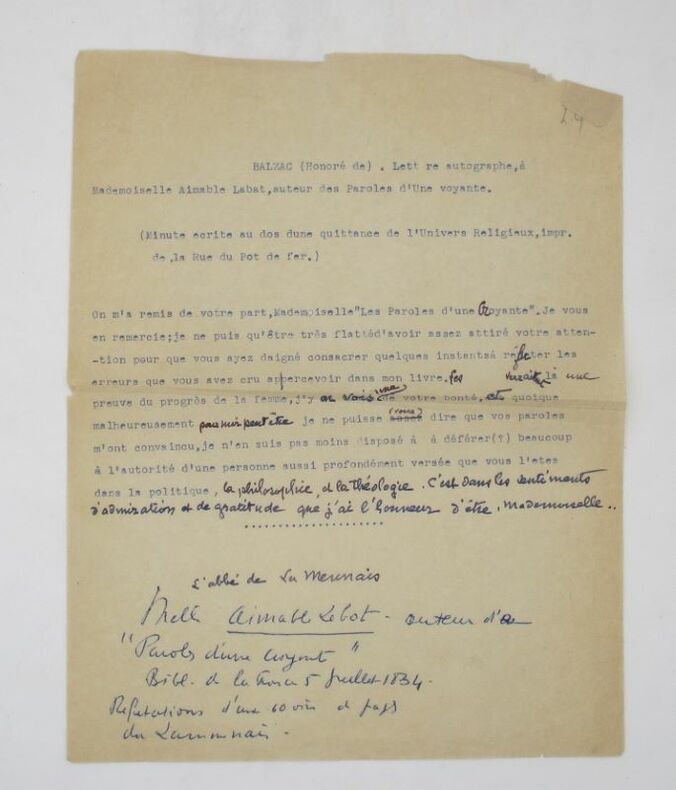 BALZAC (Honoré de) . Lett re autographe,à
Mademoiselle Aimable Labat,auteur des Paroles d'Une voyante.
(Minute ecrite au dos dune quittance de l'Univers Religieux,impr.
de ,la Rue du Pot de fer.)
On m'a remis de votre part,Mademoiselle"Les Paroles d'une Croyante".Je vous
en remercie;je ne puis qu'être très flattéd'avoir assez attiré votre atten-
-tion pour que vous ayez daigné consacrer quelques instantsà réfuter les
erreurs que vous avez cru appercevoir dans mon livre. là une
preuve du progrès de la femme,j'y de votre bonté, et quoique
malheureusement peut être je ne puisse assez (vous) dire que vos paroles
m'ont convaincu,je n'en suis pas moins disposé à à déférer(?) beaucoup
à l'autorité d'une personne aussi profondément versée que vous l'etes
dans la politique, la philosophie, et la théologie. C'est dans les sentiments
d'admiration et de gratitude que j'ai l'honneur d'être, Mademoiselle..
L'abbé de La Mennais
Melle Aimable Lebot - auteur d'
"Paroles d'une croyante"
Bibl. de la France 5 Juillet 1834.
Réfutations d'une de pages
du Lamennais.